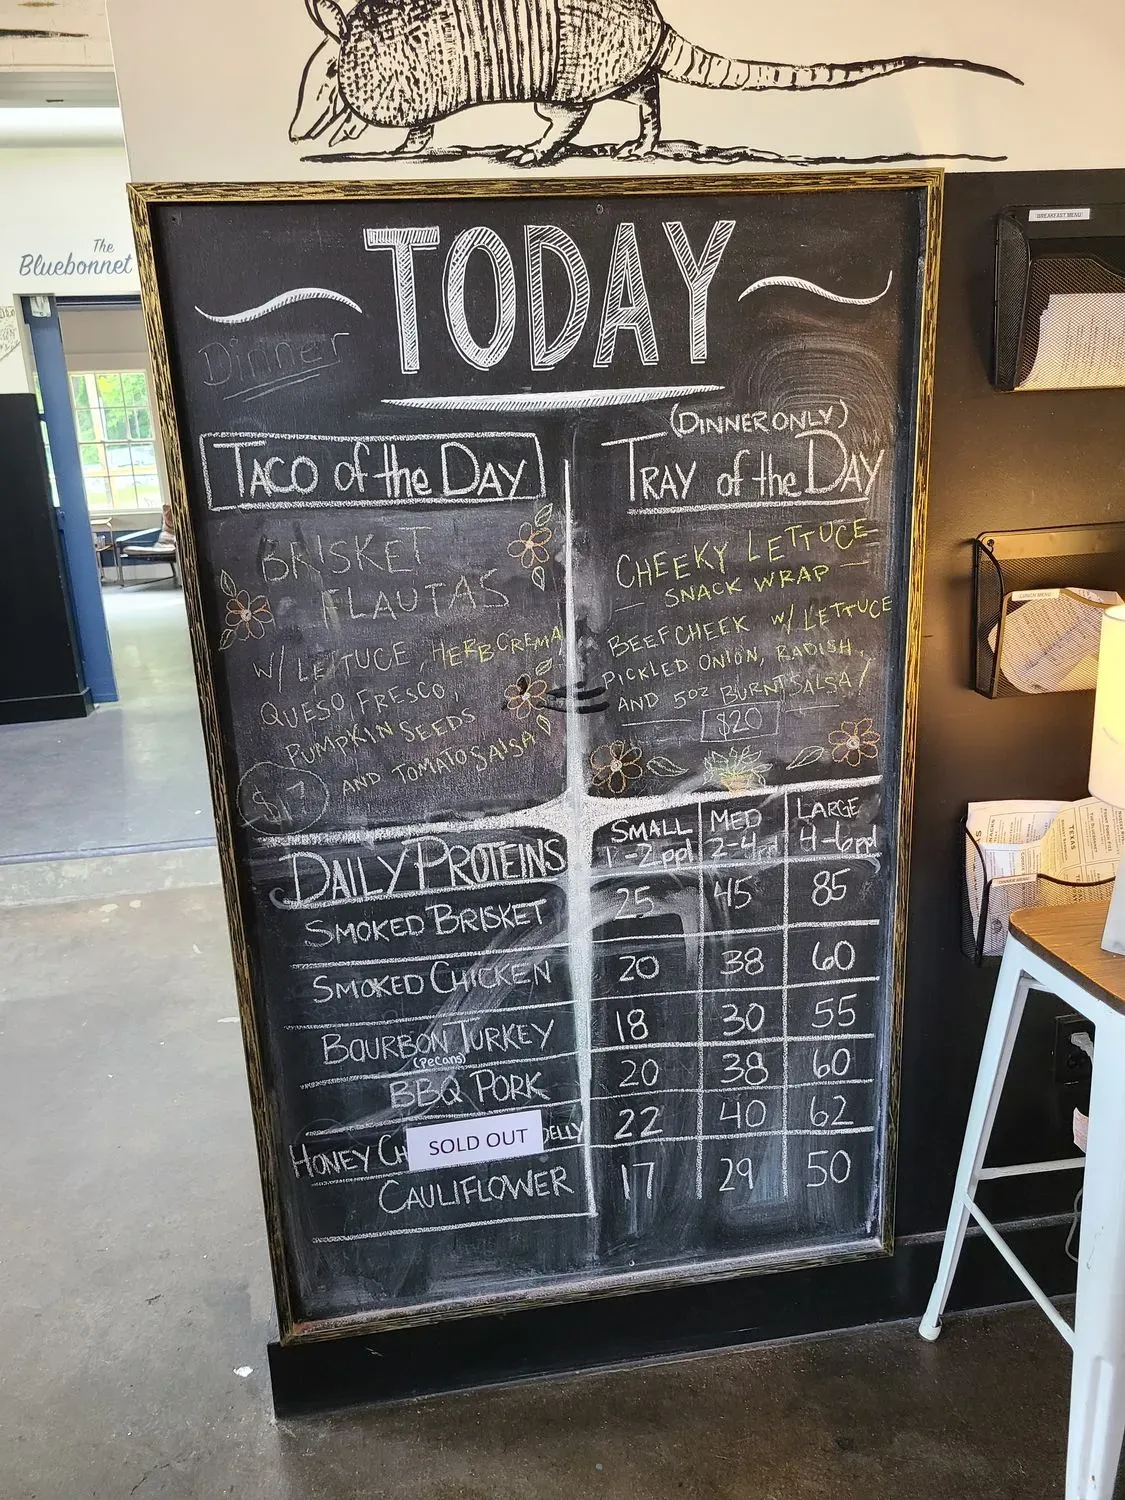 BREAKFAST MENU
The
Bluebonnet
TODAY
Dinner
TACO of the DAY
BRISKET
FLAUTAS
W/ LETTUCE, HERB CREMA
QUESO FRESCO,
PUMPKIN SEEDS
AND TOMATO SALSA!
$17
(DINNER ONLY)
TRAY of the DAY
CHEEKY LETTUCE
SNACK WRAP
BEEF CHEEK W/ LETTUCE
PICKLED ONION, RADISH,
AND 5OZ BURNT SALSA!
$20
LUNCH MENU
DAILY PROTEINS SMALL 1-2ppl MED 2-4ppl LARGE 4-6ppl
SMOKED BRISKET 25 45 85
SMOKED CHICKEN 20 38 60
BOURBON TURKEY 18 30 55
(PECANS)
BBQ PORK 20 38 60
HONEY CH SOLD OUT BELLY 22 40 62
CAULIFLOWER 17 29 50
TEXAS